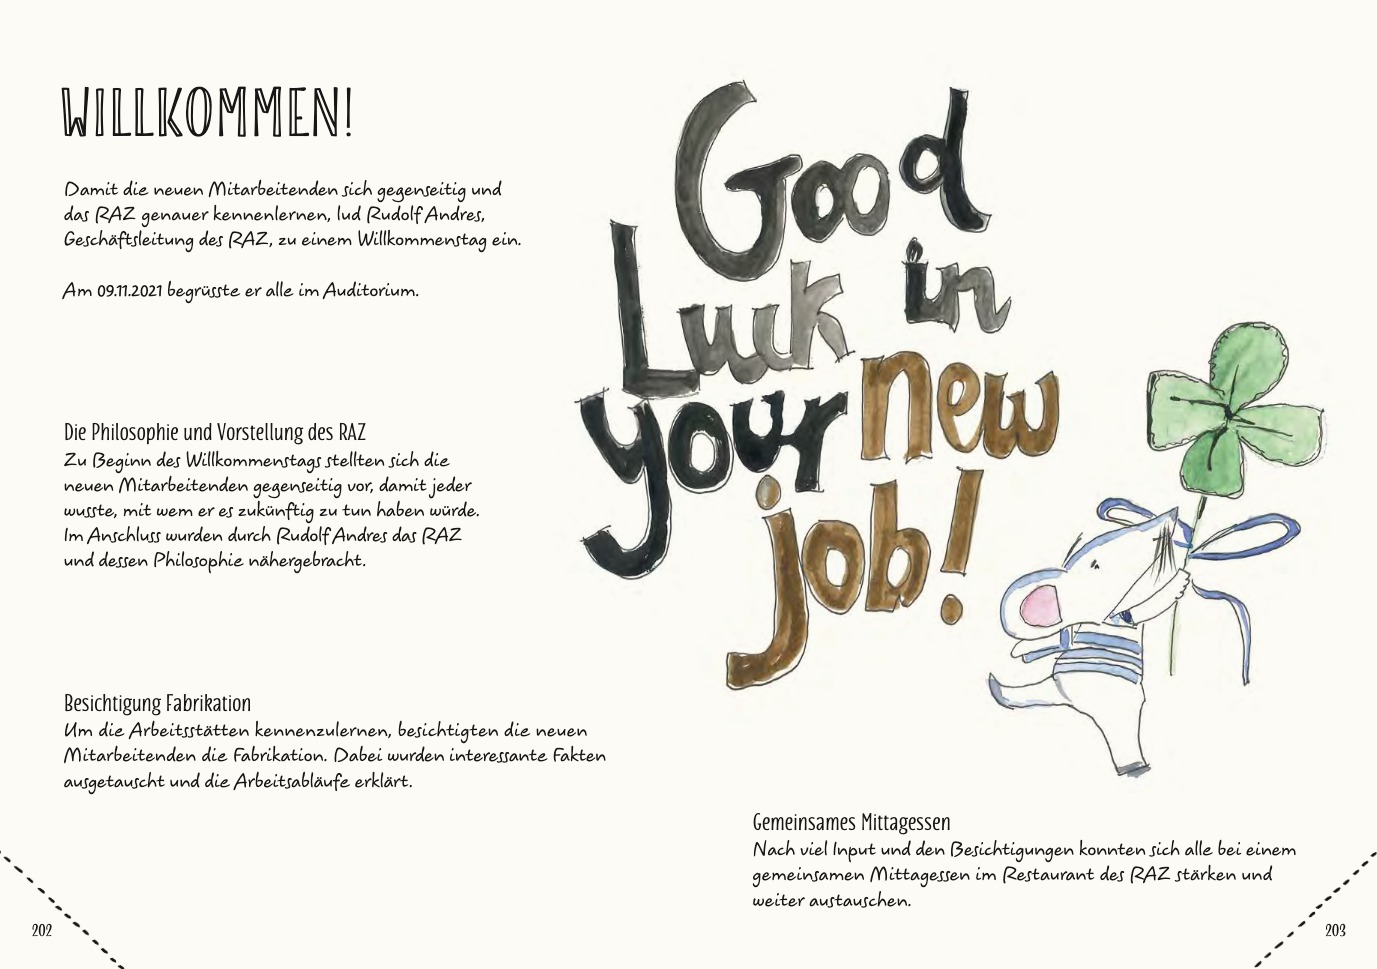 WILLKOMMEN!
Damit die neuen Mitarbeitenden sich gegenseitig und
das RAZ genauer kennenlernen, lud Rudolf Andres,
Geschäftsleitung des RAZ, zu einem Willkommenstag ein.
Am 09.11.2021 begrüsste er alle im Auditorium.
Die Philosophie und Vorstellung des RAZ
Zu Beginn des Willkommenstags stellten sich die
neuen Mitarbeitenden gegenseitig vor, damit jeder
wusste, mit wem er es zukünftig zu tun haben würde.
Im Anschluss wurden durch Rudolf Andres das RAZ
und dessen Philosophie nähergebracht.
Besichtigung Fabrikation
Um die Arbeitsstätten kennenzulernen, besichtigten die neuen
Mitarbeitenden die Fabrikation. Dabei wurden interessante Fakten
ausgetauscht und die Arbeitsabläufe erklärt.
202
Good
Luck in
your new
job!
Gemeinsames Mittagessen
Nach viel Input und den Besichtigungen konnten sich alle bei einem
gemeinsamen Mittagessen im Restaurant des RAZ stärken und
weiter austauschen.
203